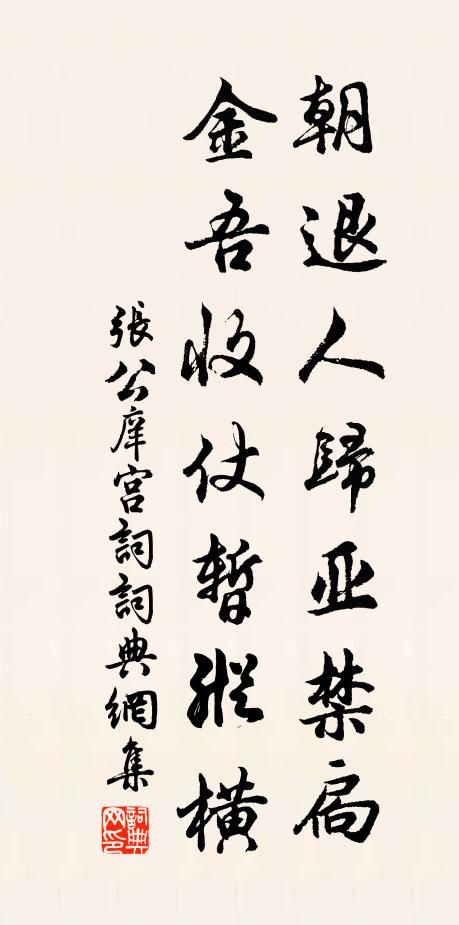 朝退人歸亚禁扃
金吾收仗暫縱横
張公庠宫詞詞典網集
詞典网印